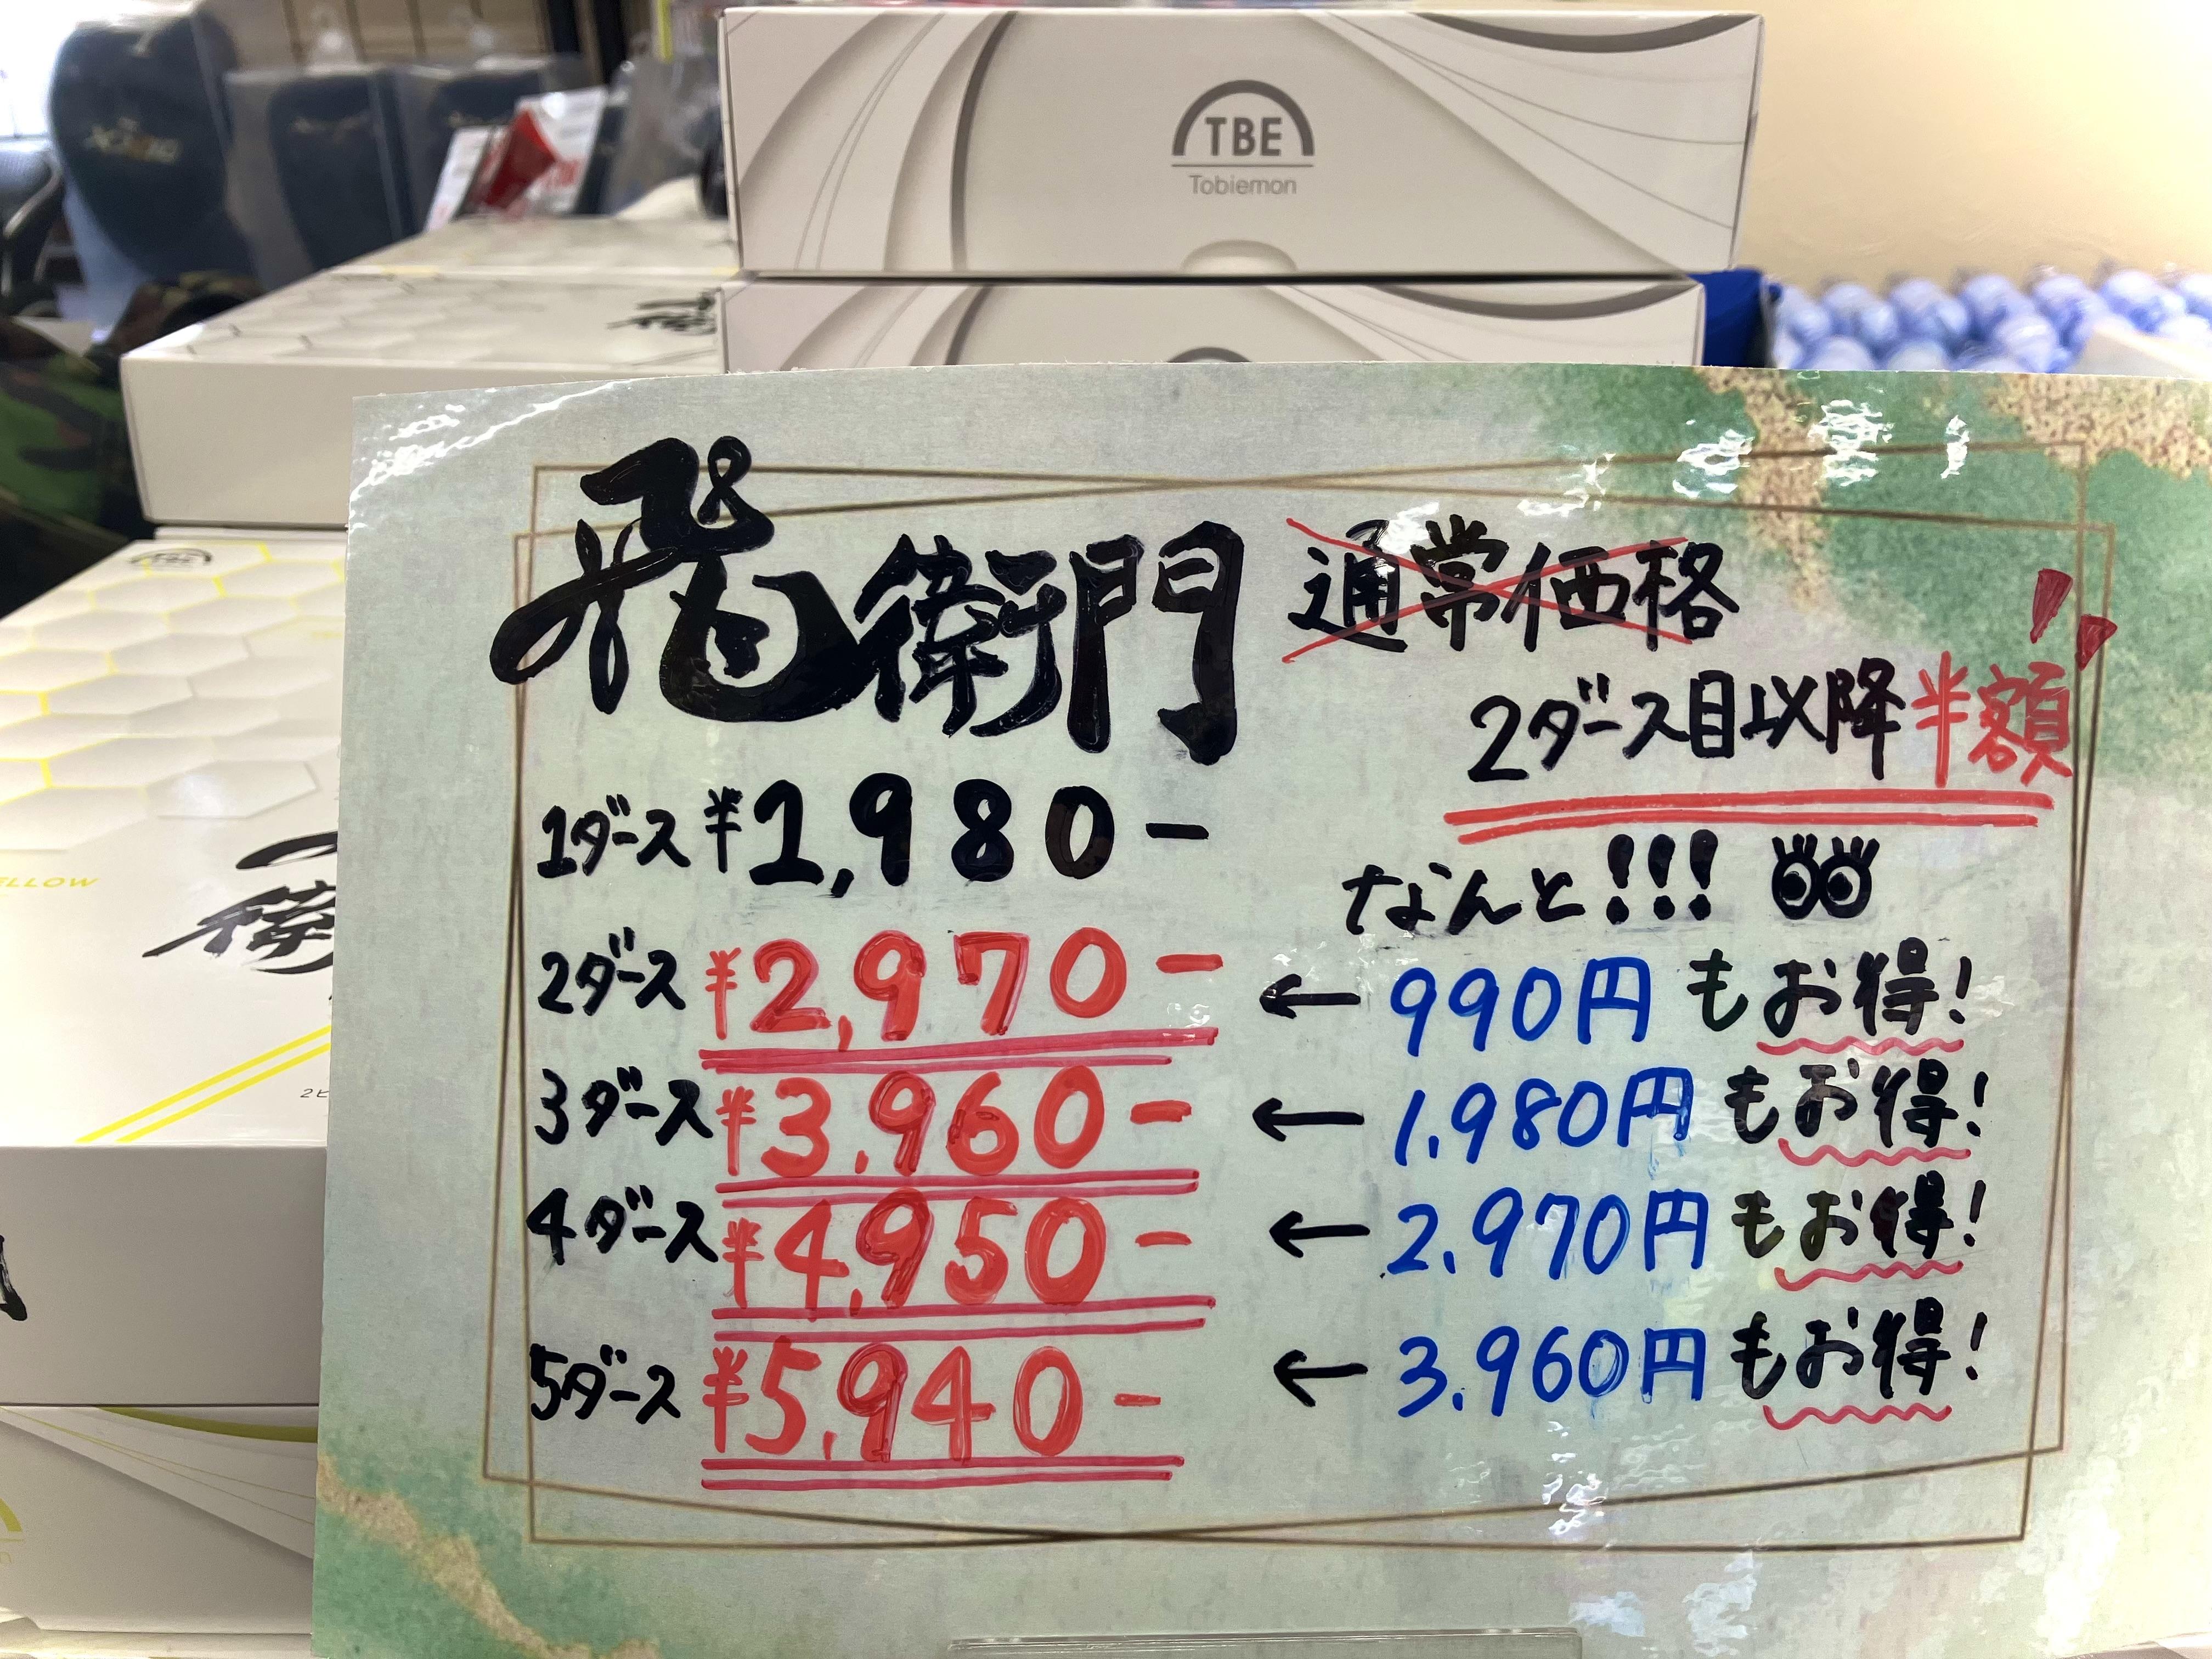 TBE
Tobiemon
飛衛門
通常価格
2ダース目以降半額!!
1ダース ¥1,980-
なんと!!!
2ダース ¥2,970- ← 990円もお得!
3ダース ¥3,960- ← 1.980円もお得!
4ダース ¥4,950- ← 2.970円もお得!
5ダース ¥5,940- ← 3.960円もお得!
TBE
ELLOW
衛